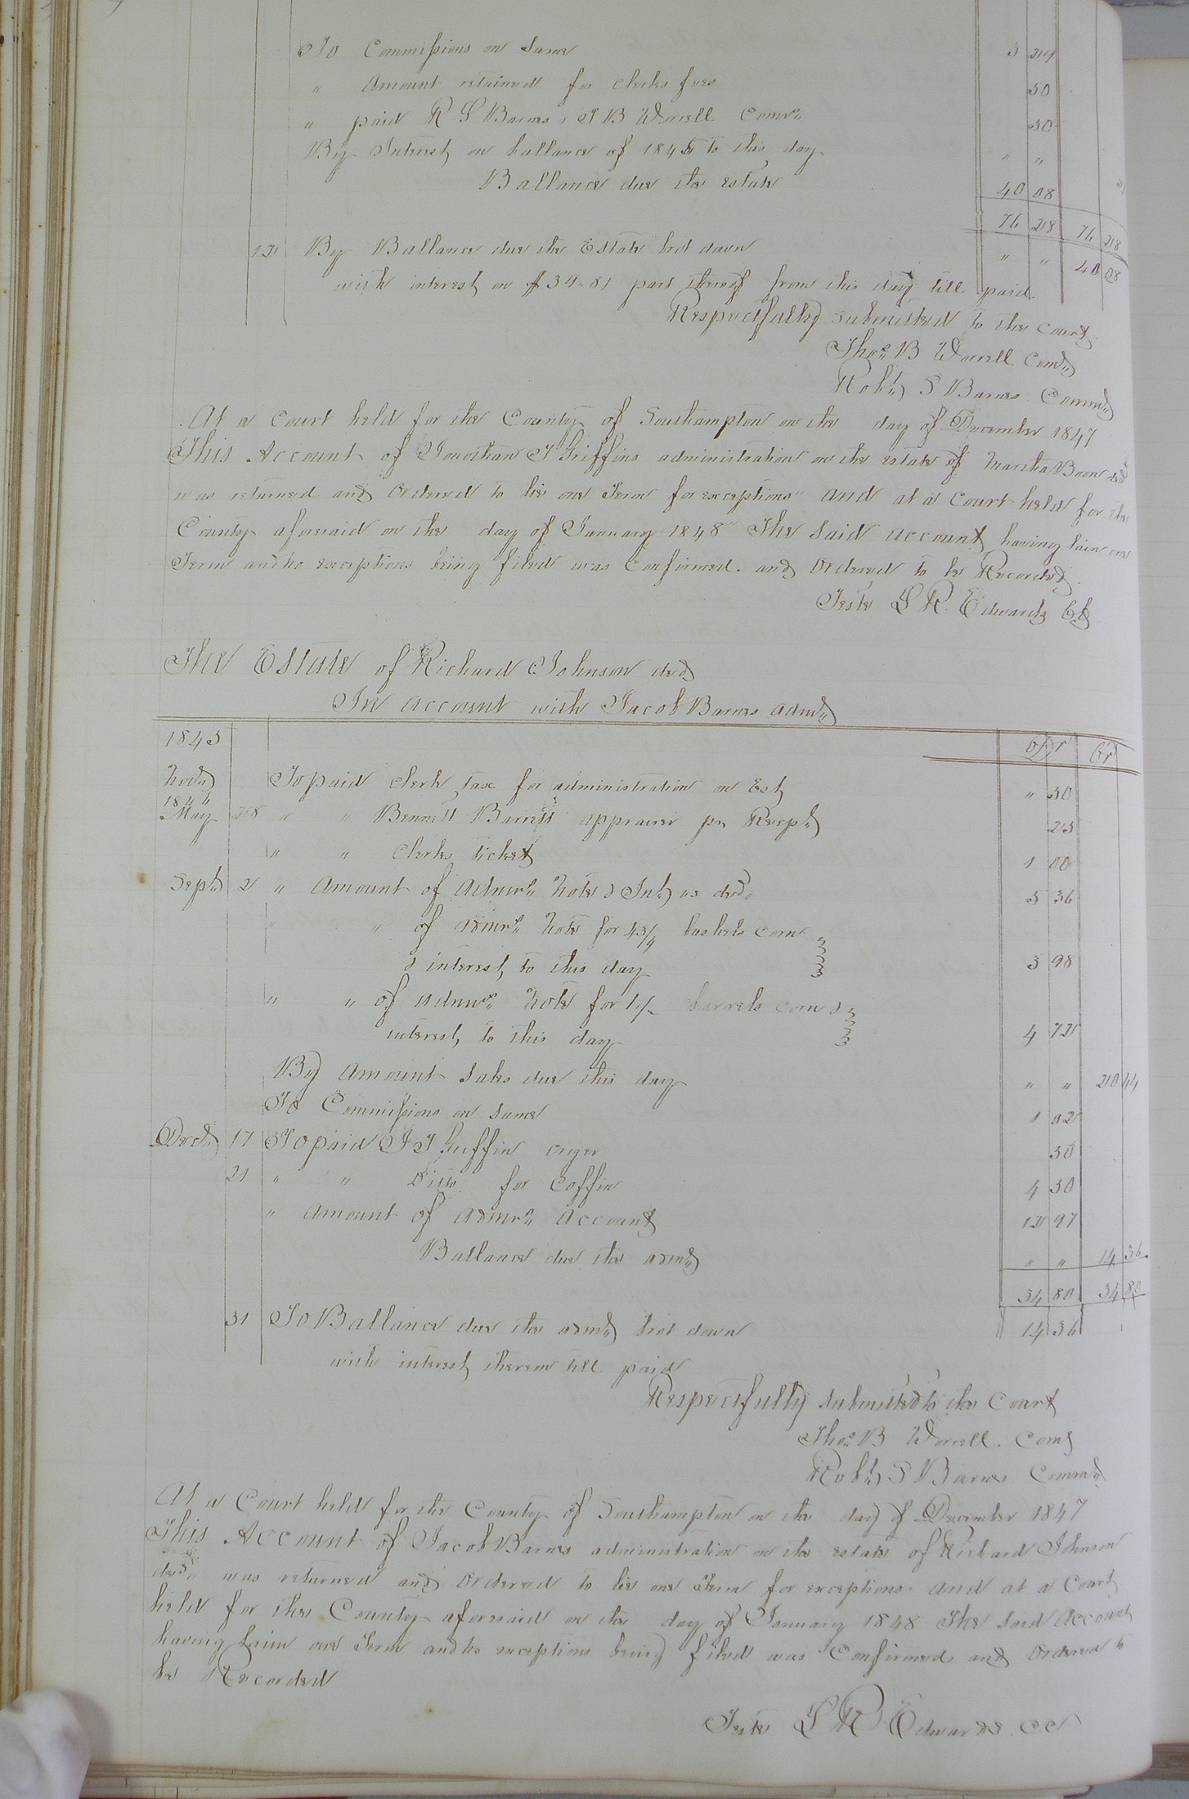 To Commissions on Same 3
" Amount retained for Clerks fees 50
" paid R S Barnes & T B Worrell Comrs 50
By Interest on ballance of 1845 to this day " "
Ballance due the estate 40 08
76 28 76 28
By Ballance due the Estate brot down " " 40 08
with interest on $39.81 part thereof from this day till paid
Respectfully submitted to the Court
Thos B Worrell Comr
Robt S Barnes Commr
At a Court held for the County of Southampton on the day of December 1847
This Account of Jonathan T Griffins administration on the estate of Martha Boon decd
was returned and Ordered to lie one Term for exceptions and at a Court held for the
County aforesaid on the day of January 1848 The Said Account having lain one
Term and no exceptions being filed was Confirmed and Ordered to be Recorded.
Teste L R Edwards Clk
The Estate of Richard Johnson decd
In Account with Jacob Barnes admr
1845 Dr Cr
Novr To paid Clerk tax for administration on Est " 50
1846
May 28 " " Bennett Barrett appraiser pr Recpt 25
" " Clerks ticket 1 00
Sept 2 " Amount of Admrs Note & Int as decd 5 36
" of admrs Note for baskets corn
& interest to this day 3 98
" " of Admrs Note for barrels corn &
interest to this day 4 72
By Amount Sales due this day " " 20 44
To Commissions on same 1 02
Decr 17 To paid J T Griffin cryer 50
21 " " Ditto for Coffin 4 50
" Amount of Admrs Account 12 97
Ballance due the admr " " 14 36
34 80 34 80
31 To Ballance due the admr brot down 14 36
with interest thereon till paid
Respectfully submitted to the Court
Thos B Worrell Comr
Robt S Barnes Commr
At a Court held for the County of Southampton on the day of December 1847
This Account of Jacob Barnes administration on the estate of Richard Johnson
decd was returned and Ordered to lie one Term for exceptions and at a Court
held for the County aforesaid on the day of January 1848 The Said Account
having lain one Term and no exceptions being filed was Confirmed and Ordered to
be Recorded
Teste L R Edwards C C